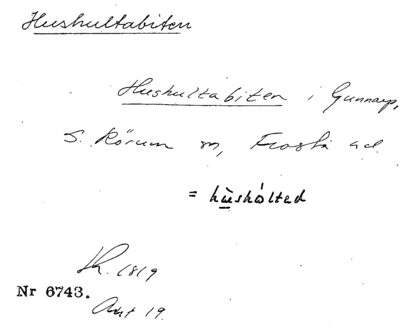 Hushultabiten
Hushultabiten i Gunnarp,
S. Rörum sn, Frosta hd.
= hùshólted
Sk. 1819
Nr 6743.
Akt 19.